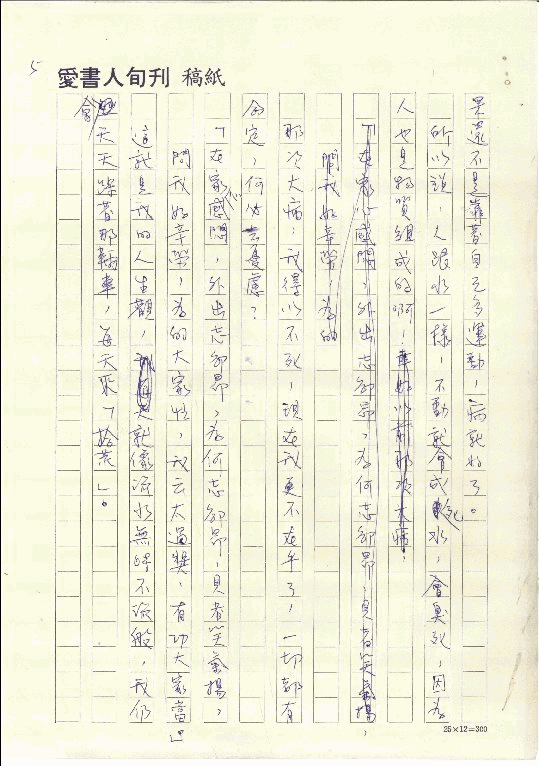 5
愛書人旬刊 稿紙
果還不是靠著自己多運動，病就好了。
所以說，人跟水一樣，不動就會成死水，會臭死，因為
人也是物質組成的啊！就如以前那次大病，
「在家心感悶，外出志卻昂，為何志卻昂，見者笑氣揚，
問我好辛勞，為的
那次大病，我得以不死，現在我更不在乎了，一切都有
命定，何必去憂慮？
「在家心感悶，外出志卻昂，為何志卻昂，見者笑氣揚，
問我好辛勞，為的大家性，我云大過獎，有功大家當」
這就是我的人生觀，就像流水無時不流般，我仍
會天天踩著那輛車，每天來「拾荒」。
25×12=300